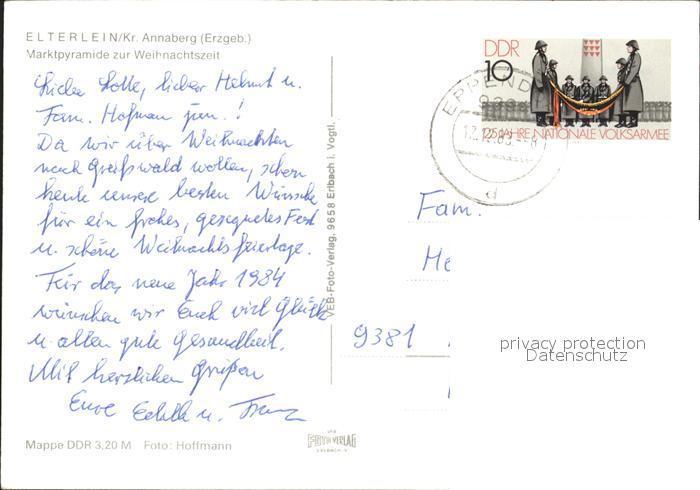 ELTERLEIN/Kr. Annaberg (Erzgeb.)
Marktpyramide zur Weihnachtszeit
Liebe Lotte, lieber Helmut u.
Fam. Hofman jun.!
Da wir über Weihnachten
nach Greifswald wollen, schon
heute unsere besten Wünsche
für ein frohes, gesegnetes Fest
u. schöne Weihnachtsfeiertage.
Für das neue Jahr 1984
wünschen wir Euch viel Glück
u. allen gute Gesundheit.
Mit herzlichen Grüßen
Eure Edith u. Franz
Mappe DDR 3,20 M Foto: Hoffmann
VEB-Foto-Verlag, 9658 Erlbach i. Vogtl.
VEB
FOTO VERLAG
ERLBACH·V
DDR
10
25 JAHRE NATIONALE VOLKSARMEE
EPPEND
d
Fam.
He
9381
privacy protection
Datenschutz